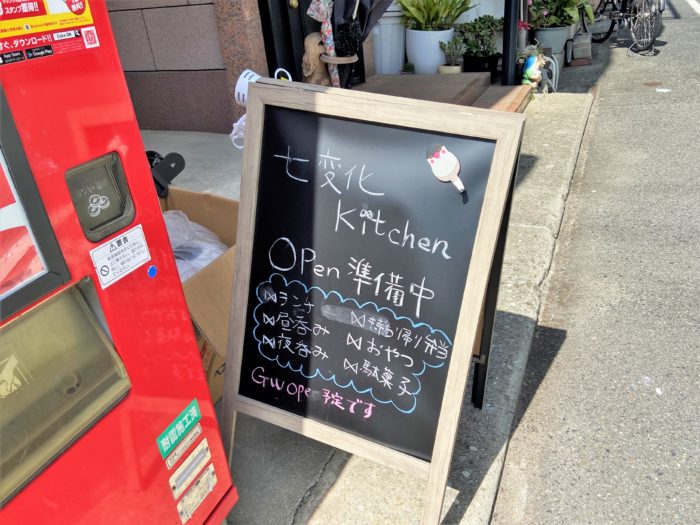 スタンプ獲得!!
今すぐ、ダウンロード!!
Coke ON
App Store
Google Play
七変化
Kitchen
OPen 準備中
⋈ランチ
⋈昼呑み
⋈夜呑み
⋈持ち帰り弁当
⋈おやつ
⋈駄菓子
GW OPe 予定です
警告
耐震施工済